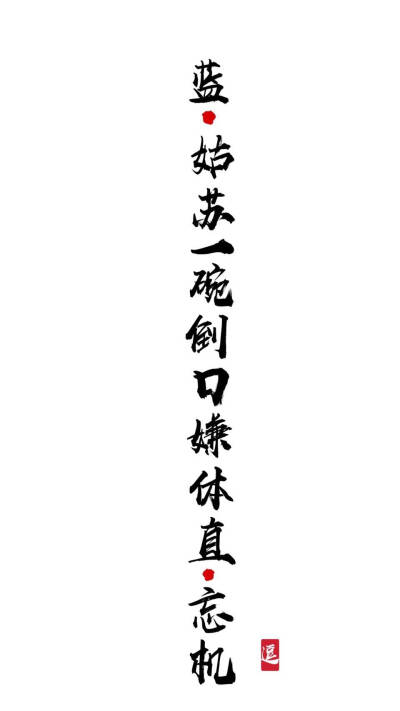 蓝·姑苏一碗倒口嫌体直·忘机
逗